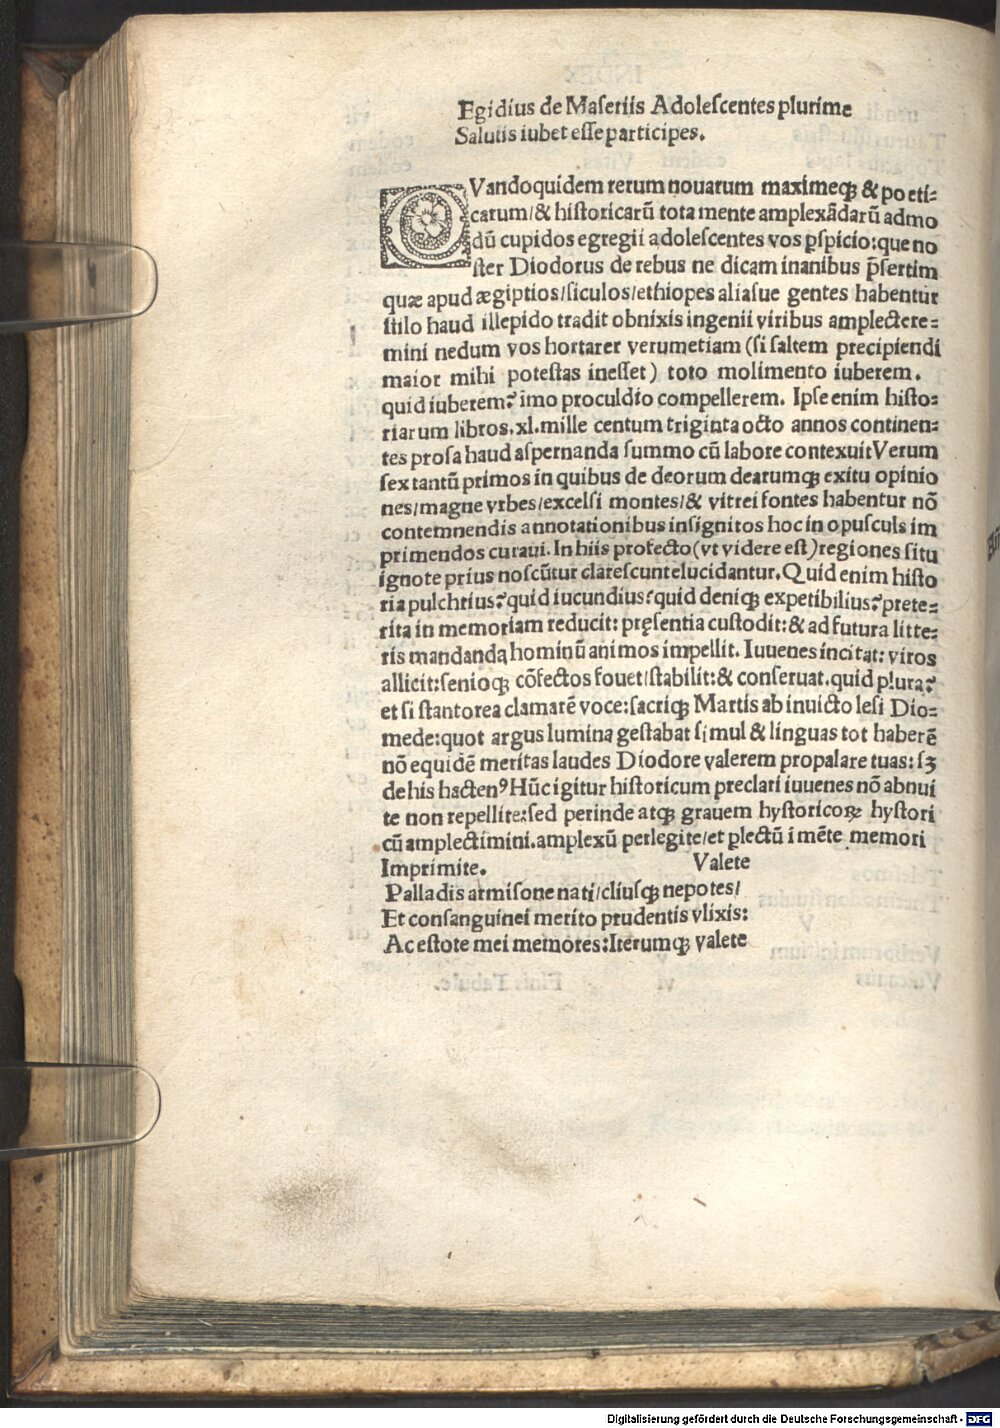 Egidius de Maseriis Adolescentes plurime
Salutis iubet esse participes.
QVandoquidem rerum nouarum maximeqꝫ & poeti-
carum/& historicarū tota mente amplexādarū admo
dū cupidos egregii adolescentes vos pspicio:que no
ster Diodorus de rebus ne dicam inanibus p̄sertim
quæ apud ægiptios/siculos/ethiopes aliasue gentes habentur
stilo haud illepido tradit obnixis ingenii viribus amplectere-
mini nedum vos hortarer verumetiam (si saltem precipiendi
maior mihi potestas inesset) toto molimento iuberem.
quid iuberem? imo proculdio compellerem. Ipse enim histo-
riarum libros.xl.mille centum triginta octo annos continen-
tes prosa haud aspernanda summo cū labore contexuit Verum
sex tantū primos in quibus de deorum dearumqꝫ exitu opinio
nes/magne vrbes/excelsi montes/& vitrei fontes habentur nō
contemnendis annotationibus insignitos hoc in opusculs im
primendos curaui. In hiis profecto (vt videre est) regiones situ
ignote prius noscūtur clarescunt elucidantur. Quid enim histo
ria pulchrius? quid iucundius? quid deniqꝫ expetibilius? prete-
rita in memoriam reducit: pręsentia custodit: & ad futura litte-
ris mandandą hominū animos impellit. Iuuenes incitat: viros
allicit: senioqꝫ cōfectos fouet/stabilit: & conseruat. quid plura?
et si stantorea clamarē voce: sacriqꝫ Martis ab inuicto lesi Dio-
mede: quot argus lumina gestabat simul & linguas tot haberē
nō equidē meritas laudes Diodore valerem propalare tuas: sꝫ
de his hactenꝰ Hūc igitur historicum preclari iuuenes nō abnui
te non repellite: sed perinde atqꝫ grauem hystoricoꝝ hystori
cū amplectimini. amplexū perlegite/et plectū i mēte memori
Imprimite. Valete
Palladis armisone nati/cliusqꝫ nepotes/
Et consanguinei merito prudentis vlixis:
Ac estote mei memores: Iterumqꝫ valete
Digitalisierung gefördert durch die Deutsche Forschungsgemeinschaft - DFG